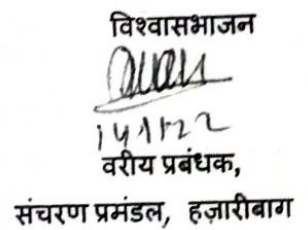 विश्वासभाजन
वरीय प्रबंधक,
संचरण प्रमंडल, हज़ारीबाग